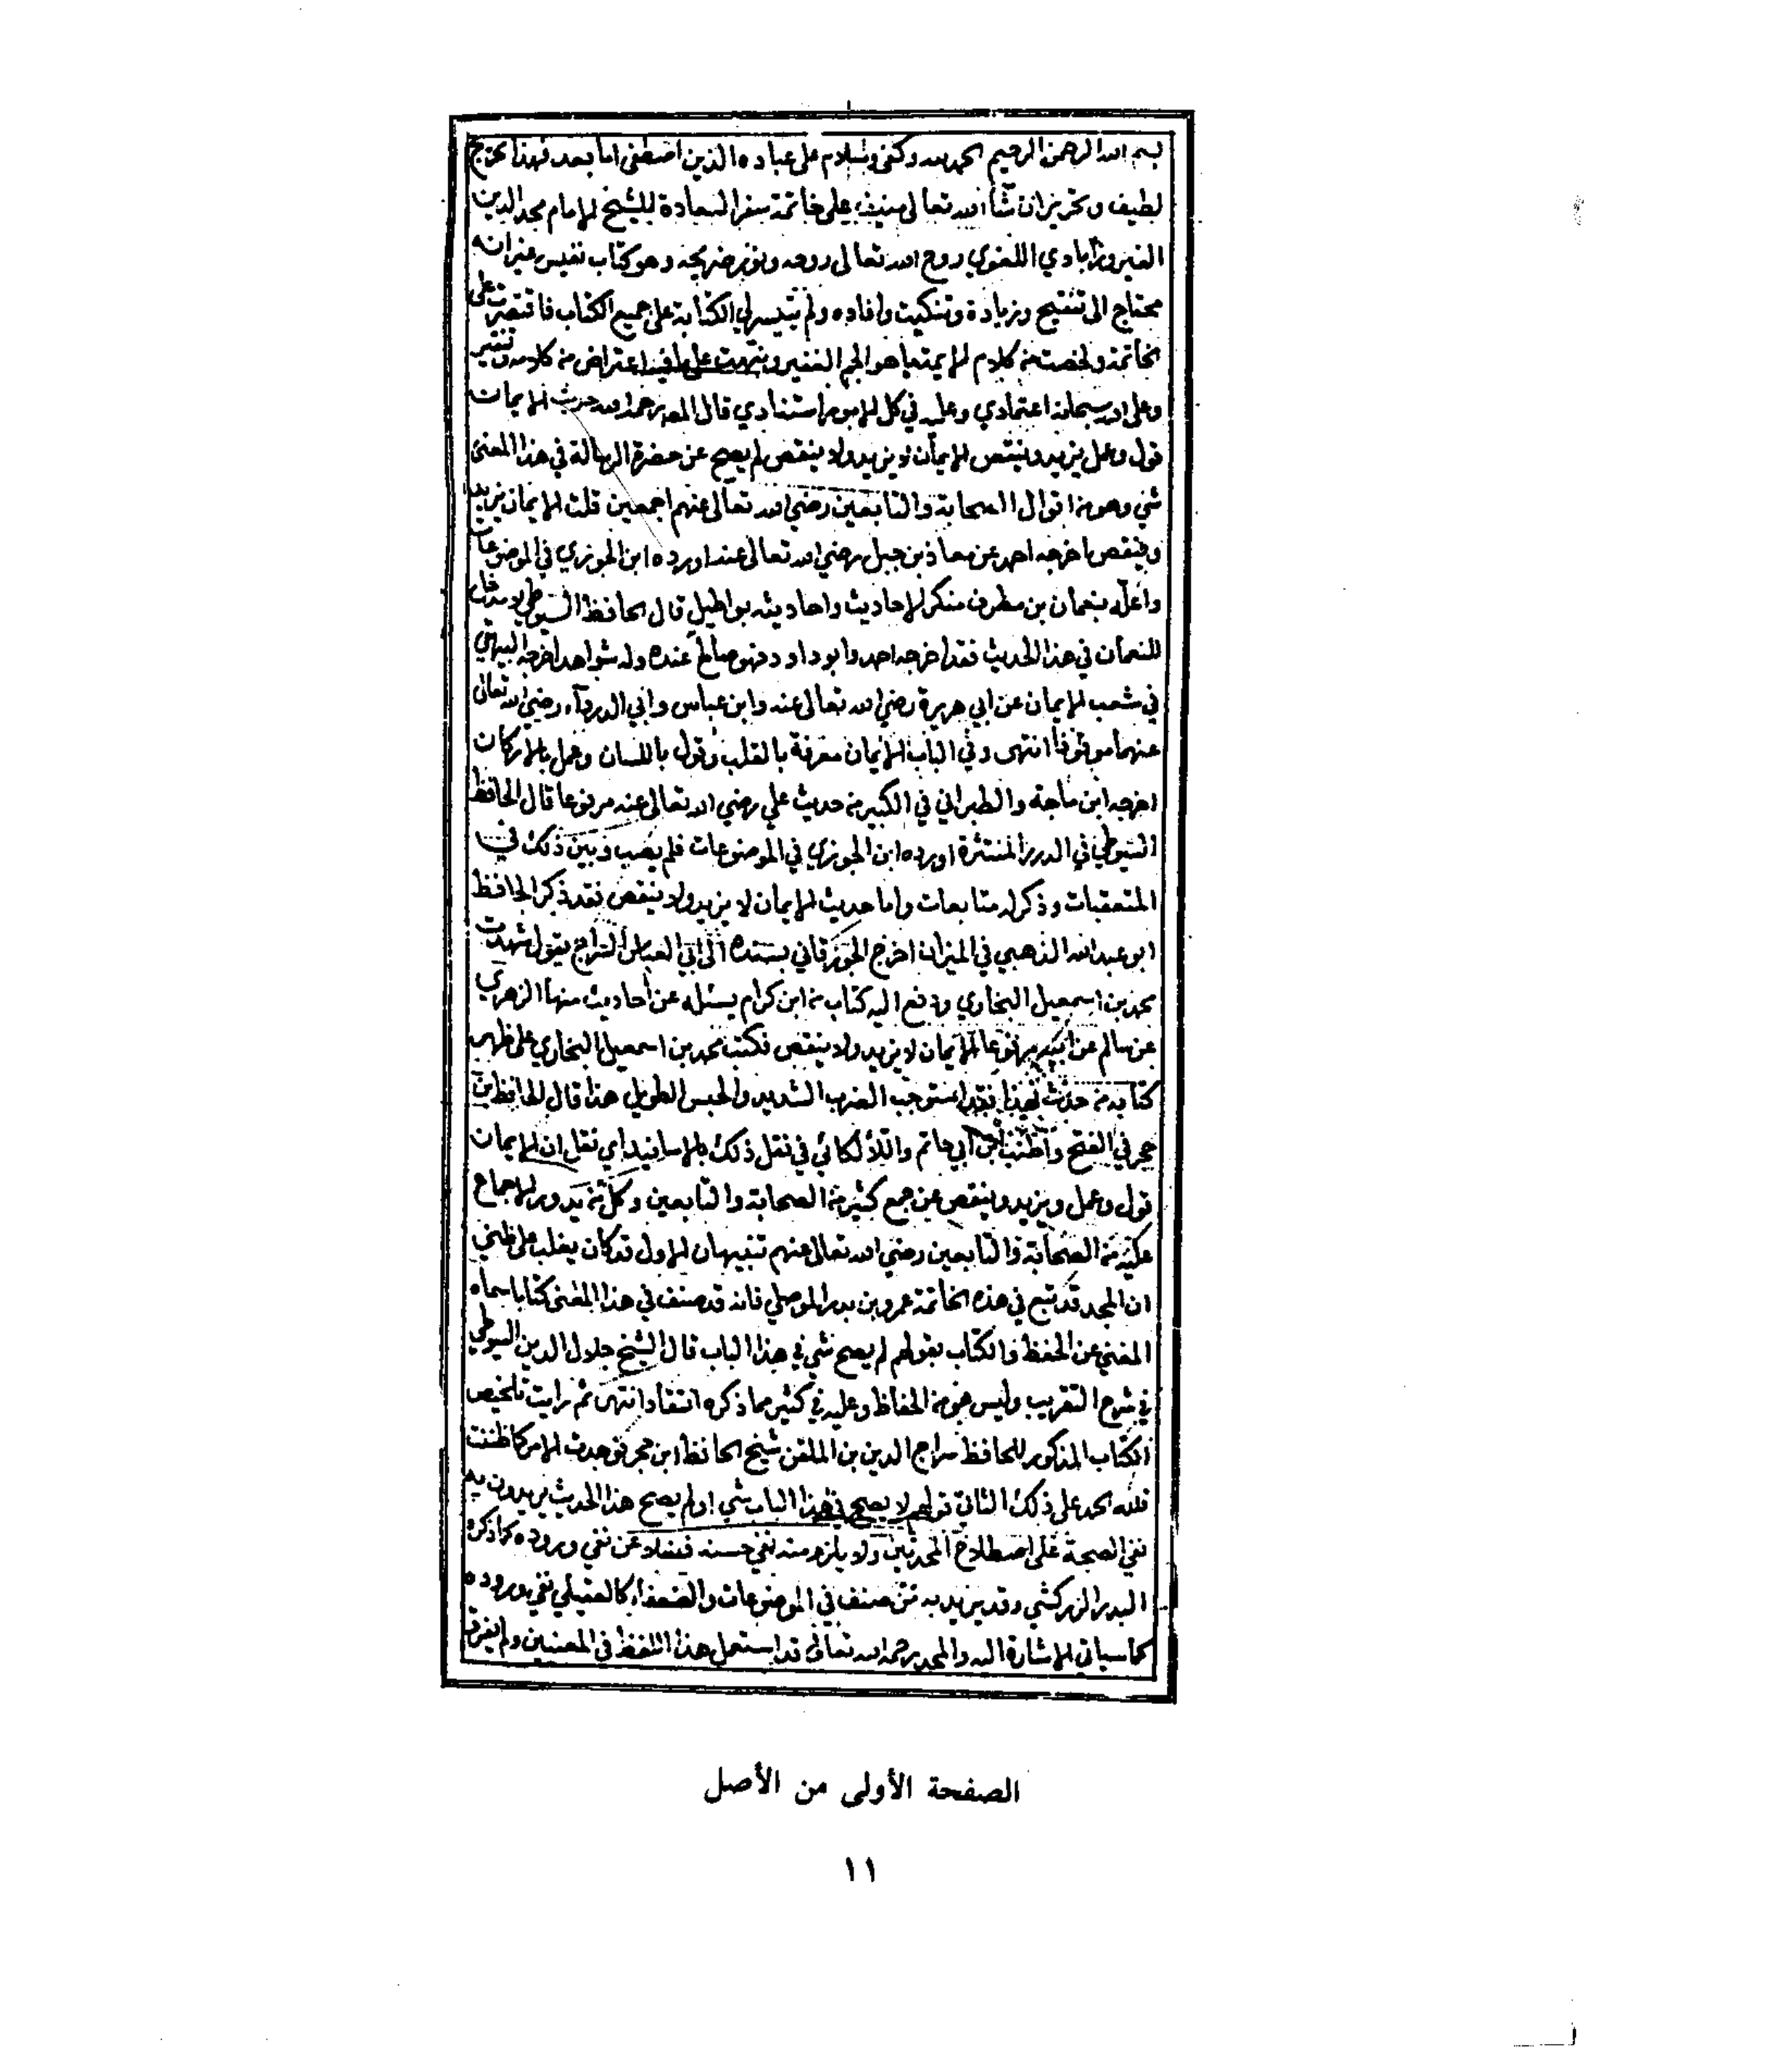 بسم الله الرحمن الرحيم الحمد لله وكفى وسلام على عباده الذين اصطفى اما بعد فهذا تخريج
لطيف وتحرير ان شآ الله تعالى منيف على خاتمة سفر السعادة للشيخ الامام مجد الدين
الفيروزابادي اللغوي روح الله تعالى روحه ونور ضريحه وهو كتاب نفيس غير انه
محتاج الى تنقيح وزيادة وتنكيت وافاده ولم يتيسر لي الكتابة على جميع الكتاب فاقتصرت على
الخاتمة ولخصت من كلام الايمة ما هو الجم الغفير ونبهت على ما فيه اعتراض من كلامه
وعلى الله سبحانه اعتمادي وعليه في كل الامور استنادي قال المص رحمه الله حديث الايمان
قول وعمل يزيد وينقص الايمان لا يزيد ولا ينقص لم يصح عن حضرة الرسالة في هذا المعنى
شي وهو من اقوال الصحابة والتابعين رضي الله تعالى عنهم اجمعين قلت الايمان يزيد
وينقص اخرجه احمد عن معاذ بن جبل رضي الله تعالى عنه اورده ابن الجوزي في الموضوعات
واعله بنعمان بن مطرف منكر الاحاديث واحاديثه بواطيل قال الحافظ السيوطي لا مدخل
للنعمان في هذا الحديث فقد اخرجه احمد وابو داود فهو صالح عنده وله شواهد اخرجه البيهقي
في شعب الايمان عن ابي هريرة رضي الله تعالى عنه وابن عباس وابي الدردآء رضي الله تعالى
عنهما موقوفا انتهى وفي الباب الايمان معرفة بالقلب وقول باللسان وعمل بالاركان
اخرجه ابن ماجة والطبراني في الكبير من حديث علي رضي الله تعالى عنه مرفوعا قال الحافظ
السيوطي في الدرر المنتثرة اورده ابن الجوزي في الموضوعات فلم يصب وبين ذلك في
المتعقبات وذكر له متابعات واما حديث الايمان لا يزيد ولا ينقص فقد ذكر الحافظ
ابو عبد الله الذهبي في الميزان اخرج الجوزقاني بسنده الى ابي العباس السراج يقول شهدت
محمد بن اسمعيل البخاري ودفع اليه كتاب من ابن كرام يسئله عن احاديث منها الزهري
عن سالم عن ابيه مرفوعا الايمان لا يزيد ولا ينقص فكتب محمد بن اسمعيل البخاري على ظهر
كتابه من حدث بهذا فقد استوجب الضرب الشديد والحبس الطويل هذا قال الحافظ ابن
حجر في الفتح واطنب ابن ابي حاتم واللالكائي في نقل ذلك بالاسانيد اي نقل ان الايمان
قول وعمل ويزيد وينقص عن جمع كثير من الصحابة والتابعين وكل من يدور الاجماع
عليه من الصحابة والتابعين رضي الله تعالى عنهم تنبيهان الاول قد كان يغلب على ظني
ان المجد قد تبع في هذه الخاتمة عمر بن بدر الموصلي فانه قد صنف في هذا المعنى كتابا سماه
المغني عن الحفظ والكتاب بقولهم لم يصح شي في هذا الباب قال الشيخ جلال الدين السيوطي
في شرح التقريب وليس هو من الحفاظ وعليه في كثير مما ذكره انتقاد انتهى ثم رايت تلخيص
الكتاب المذكور للحافظ سراج الدين بن الملقن شيخ الحافظ ابن حجر فوجدت الامر كما ظننت
فلله الحمد على ذلك الثاني قولهم لا يصح في هذا الباب شي او لم يصح هذا الحديث يريدون به
نفي الصحة على اصطلاح المحدثين ولا يلزم منه نفي حسنه فضلا عن نفي وروده كما ذكره
البدر الزركشي وقد يريد به من صنف في الموضوعات والضعفاء كالعقيلي نفي وروده
كما سياتي الاشارة اليه والمجد رحمه الله تعالى قد استعمل هذا اللفظ في المعنيين ولم يفرق
الصفحة الأولى من الأصل
١١